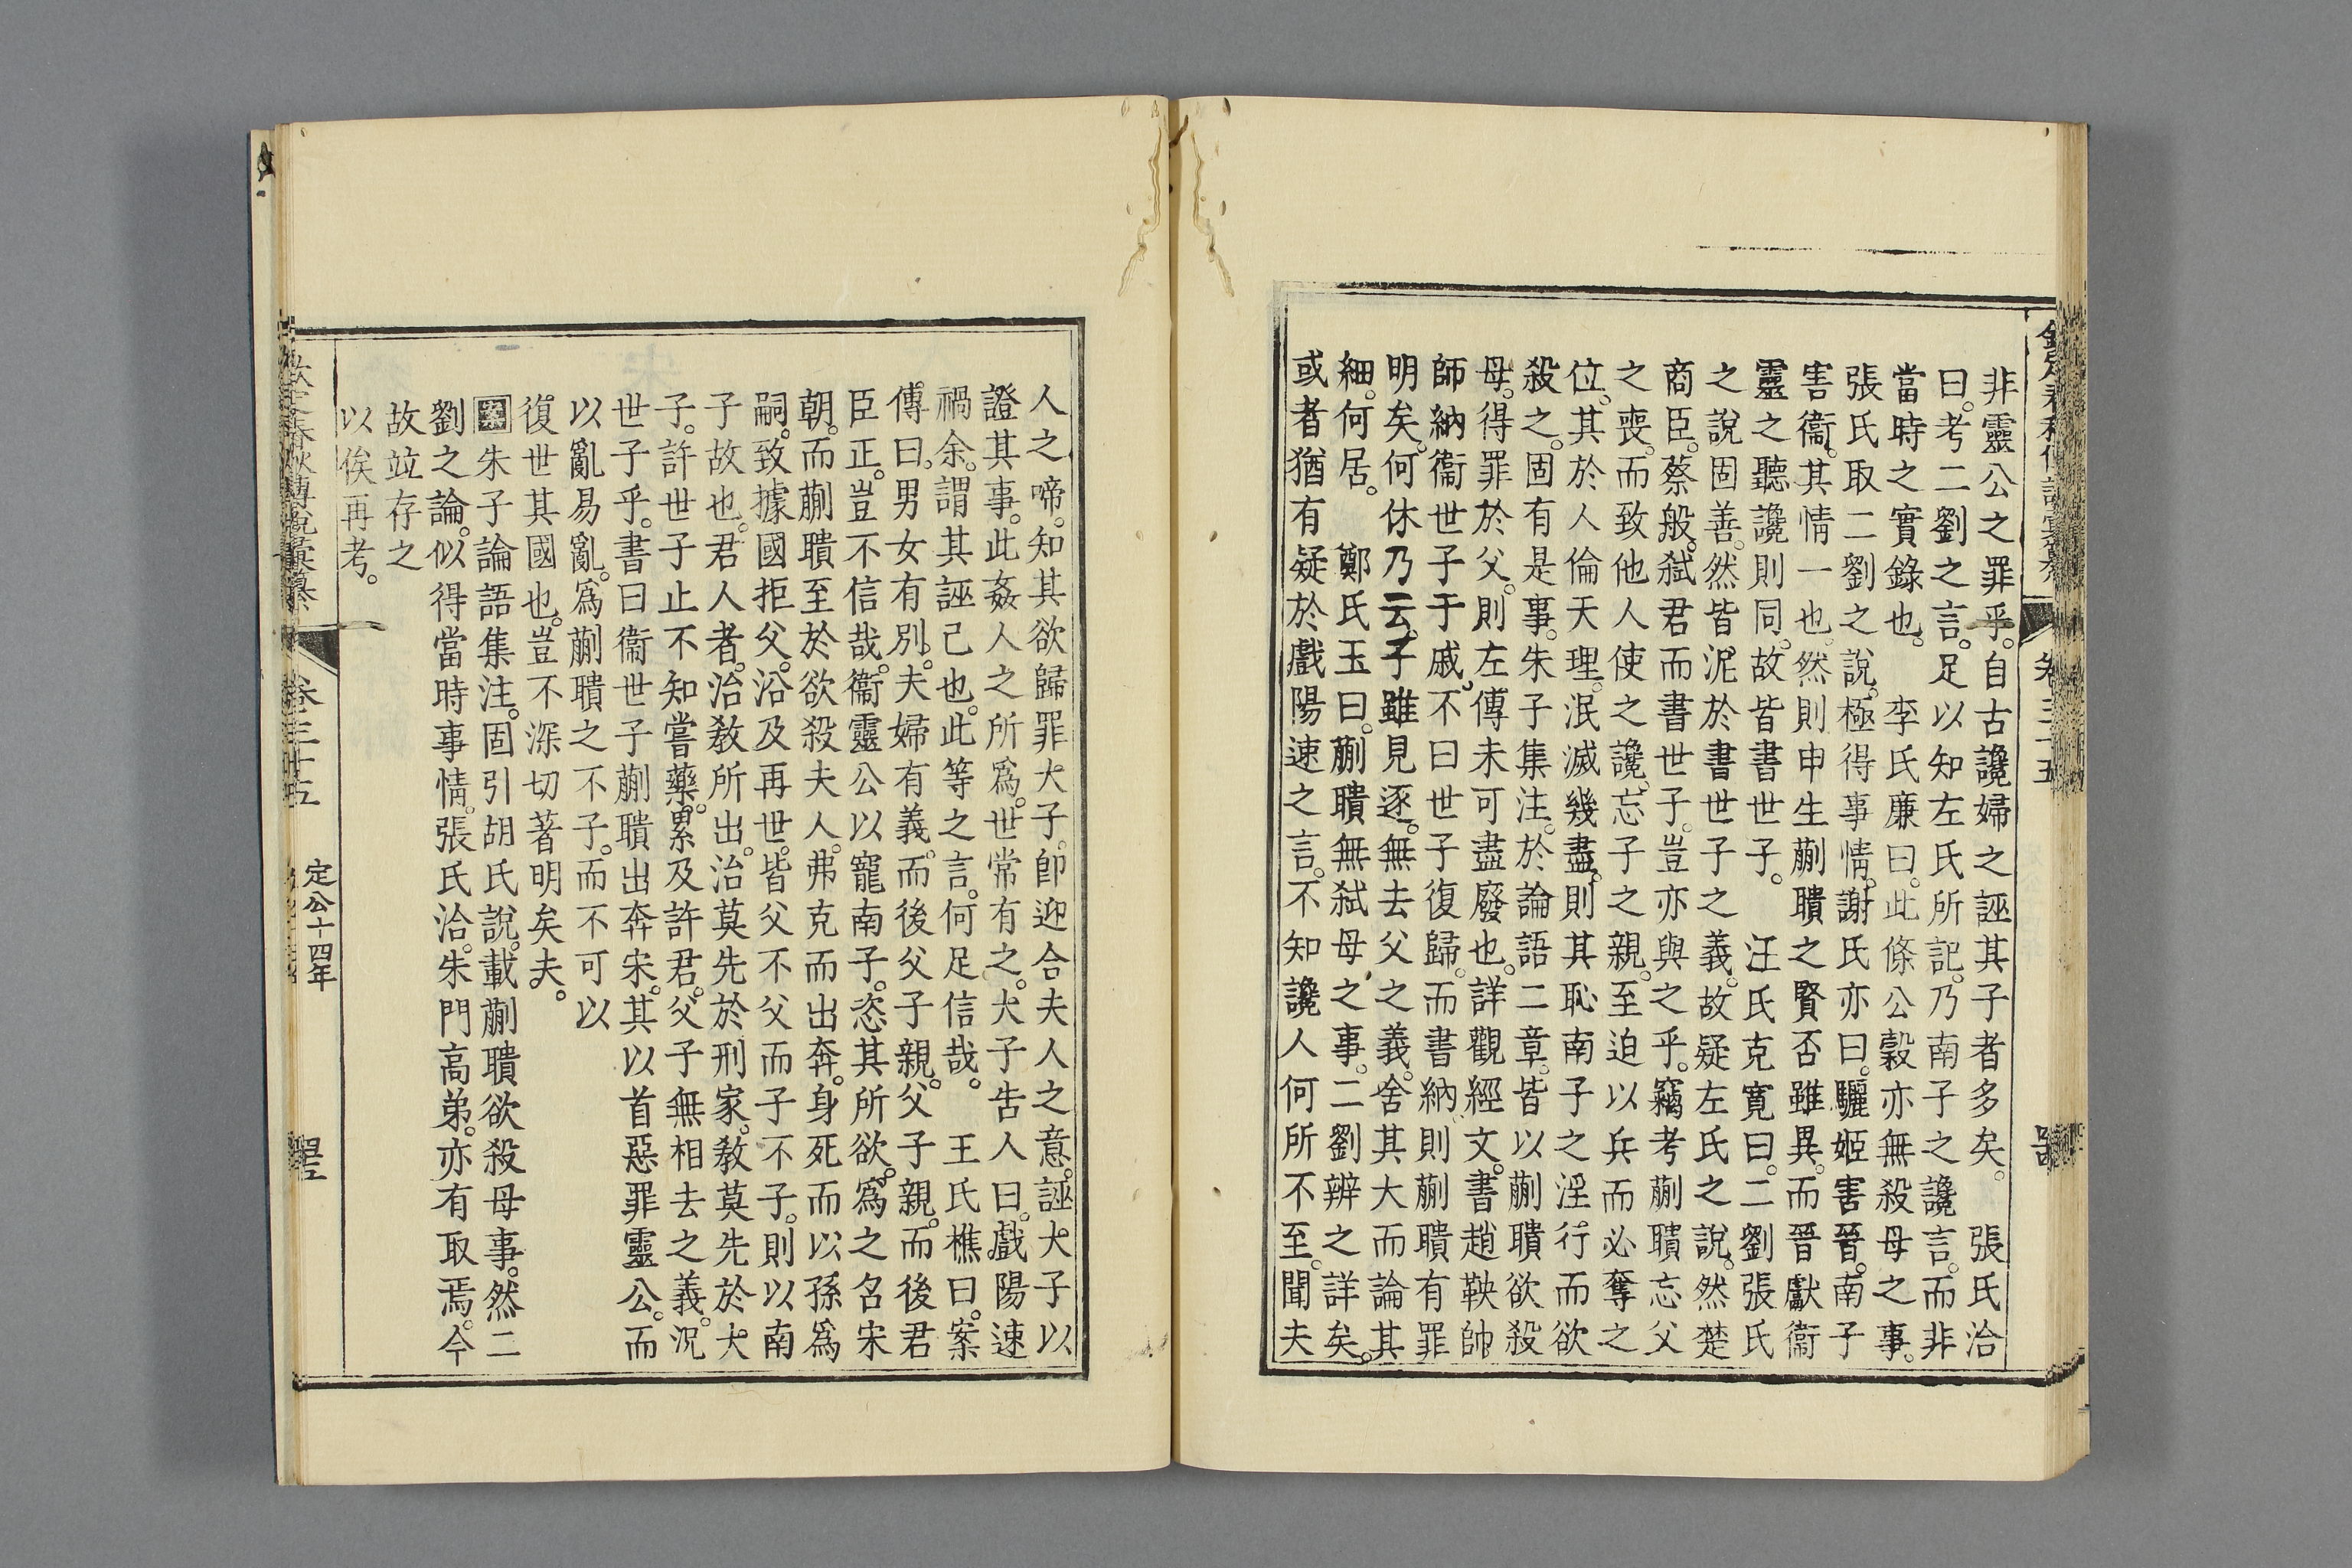 非靈公之罪乎。自古讒婦之誣其子者多矣。　張氏洽
曰。考二劉之言。足以知左氏所記。乃南子之讒言。而非
當時之實錄也。　李氏廉曰。此條公穀亦無殺母之事。
張氏取二劉之說。極得事情。謝氏亦曰。驪姬害晉。南子
害衞。其情一也。然則申生蒯聵之賢否雖異。而晉獻衞
靈之聽讒則同。故皆書世子。　汪氏克寬曰。二劉張氏
之說固善。然皆泥於書世子之義。故疑左氏之說。然楚
商臣。蔡般。弒君而書世子。豈亦與之乎。竊考蒯聵忘父
之喪。而致他人使之讒。忘子之親。至迫以兵而必奪之
位。其於人倫天理。泯滅幾盡。則其恥南子之淫行而欲
殺之。固有是事。朱子集注。於論語二章。皆以蒯聵欲殺
母。得罪於父。則左傳未可盡廢也。詳觀經文。書趙鞅帥
師納衞世子于戚。不曰世子復歸。而書納。則蒯聵有罪
明矣。何休乃云。子雖見逐。無去父之義。舍其大而論其
細。何居。　鄭氏玉曰。蒯聵無弒母之事。二劉辨之詳矣。
或者猶有疑於戲陽速之言。不知讒人何所不至。聞夫
人之啼。知其欲歸罪太子。卽迎合夫人之意。誣太子以
證其事。此姦人之所爲。世常有之。太子告人曰。戲陽速
禍余。謂其誣己也。此等之言。何足信哉。　王氏樵曰。案
傳曰。男女有別。夫婦有義。而後父子親。父子親。而後君
臣正。豈不信哉。衞靈公以寵南子。恣其所欲。爲之名宋
朝。而蒯聵至於欲殺夫人。弗克而出奔。身死而以孫爲
嗣。致據國拒父。沿及再世。皆父不父而子不子。則以南
子故也。君人者。治敎所出。治莫先於刑家。敎莫先於太
子。許世子止不知嘗藥。累及許君。父子無相去之義。況
世子乎。書曰衞世子蒯聵出奔宋。其以首惡罪靈公。而
以亂易亂。爲蒯聵之不子。而不可以
復世其國也。豈不深切著明矣夫。
案朱子論語集注。固引胡氏說。載蒯聵欲殺母事。然二
劉之論。似得當時事情。張氏洽。朱門高弟。亦有取焉。今
故竝存之
以俟再考。
欽定春秋傳說彙纂　卷三十五　定公十四年